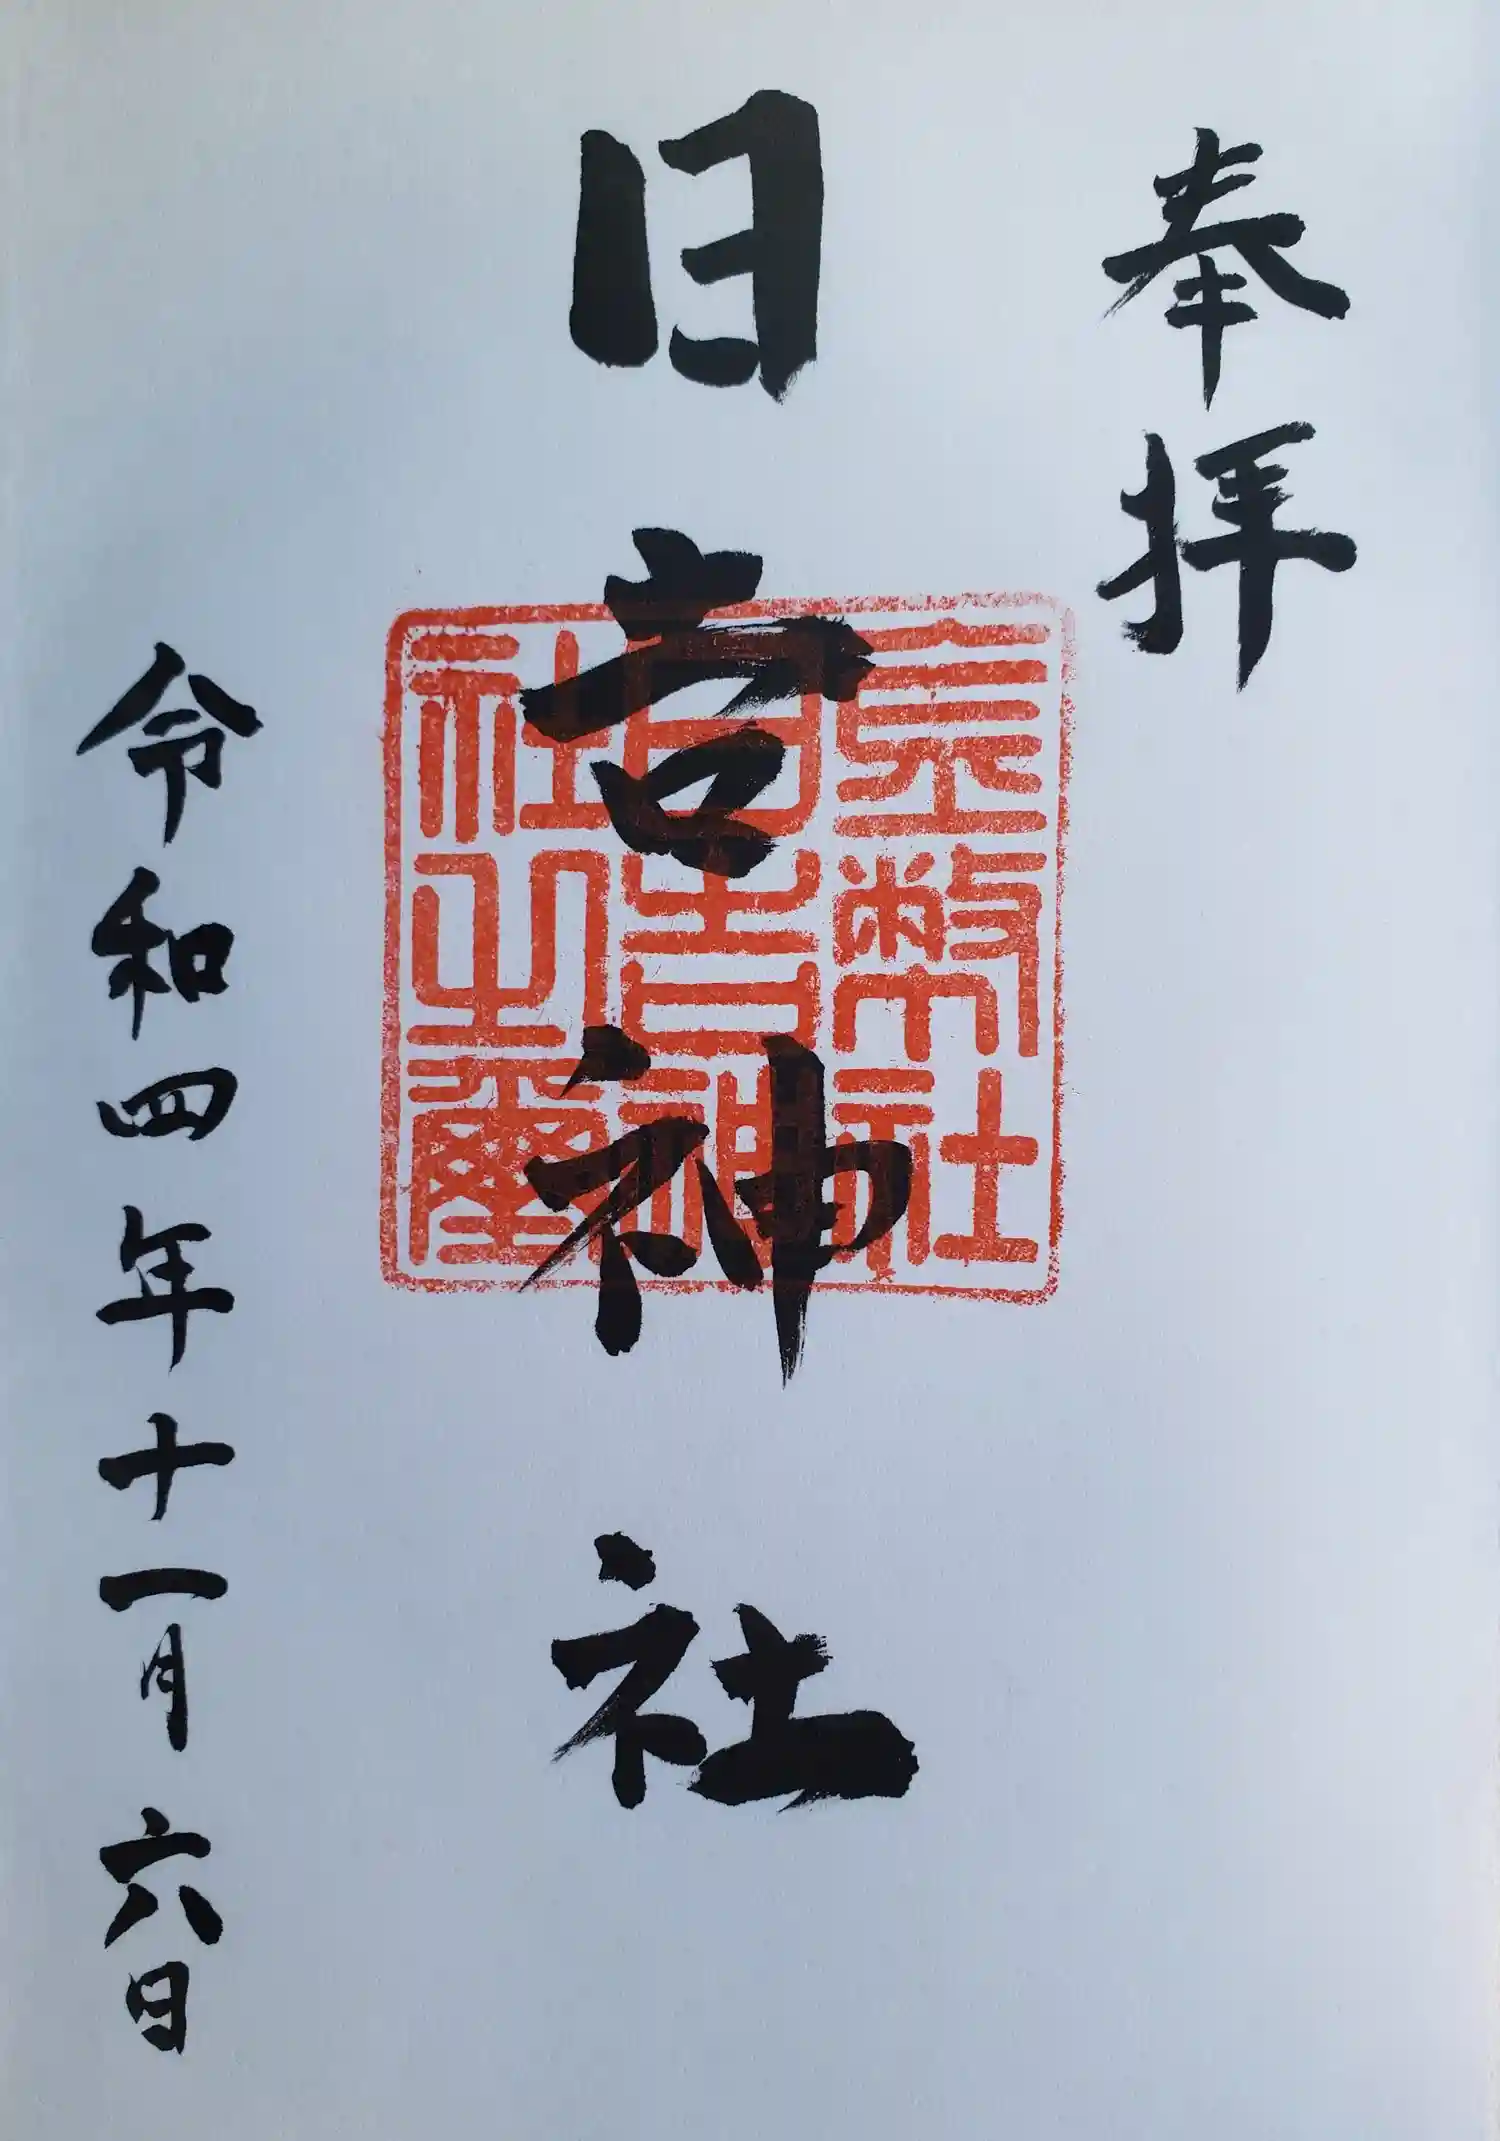 奉拝
日吉神社
令和四年十一月六日
金幣社
日吉神
社之璽